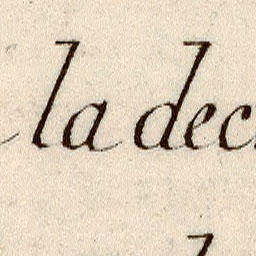 la dec